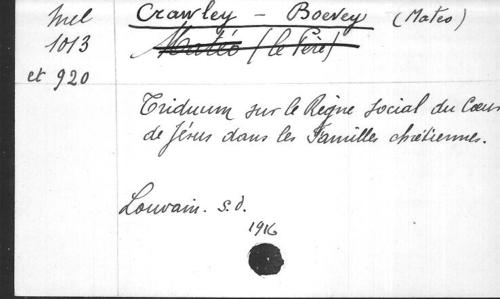 Mel
1013
et 920
Crawley - Boevey (Mateo)
Matéo (le Père)
Triduum sur le Règne social du Cœur
de Jésus dans les Familles chrétiennes.
Louvain. s.d.
1916